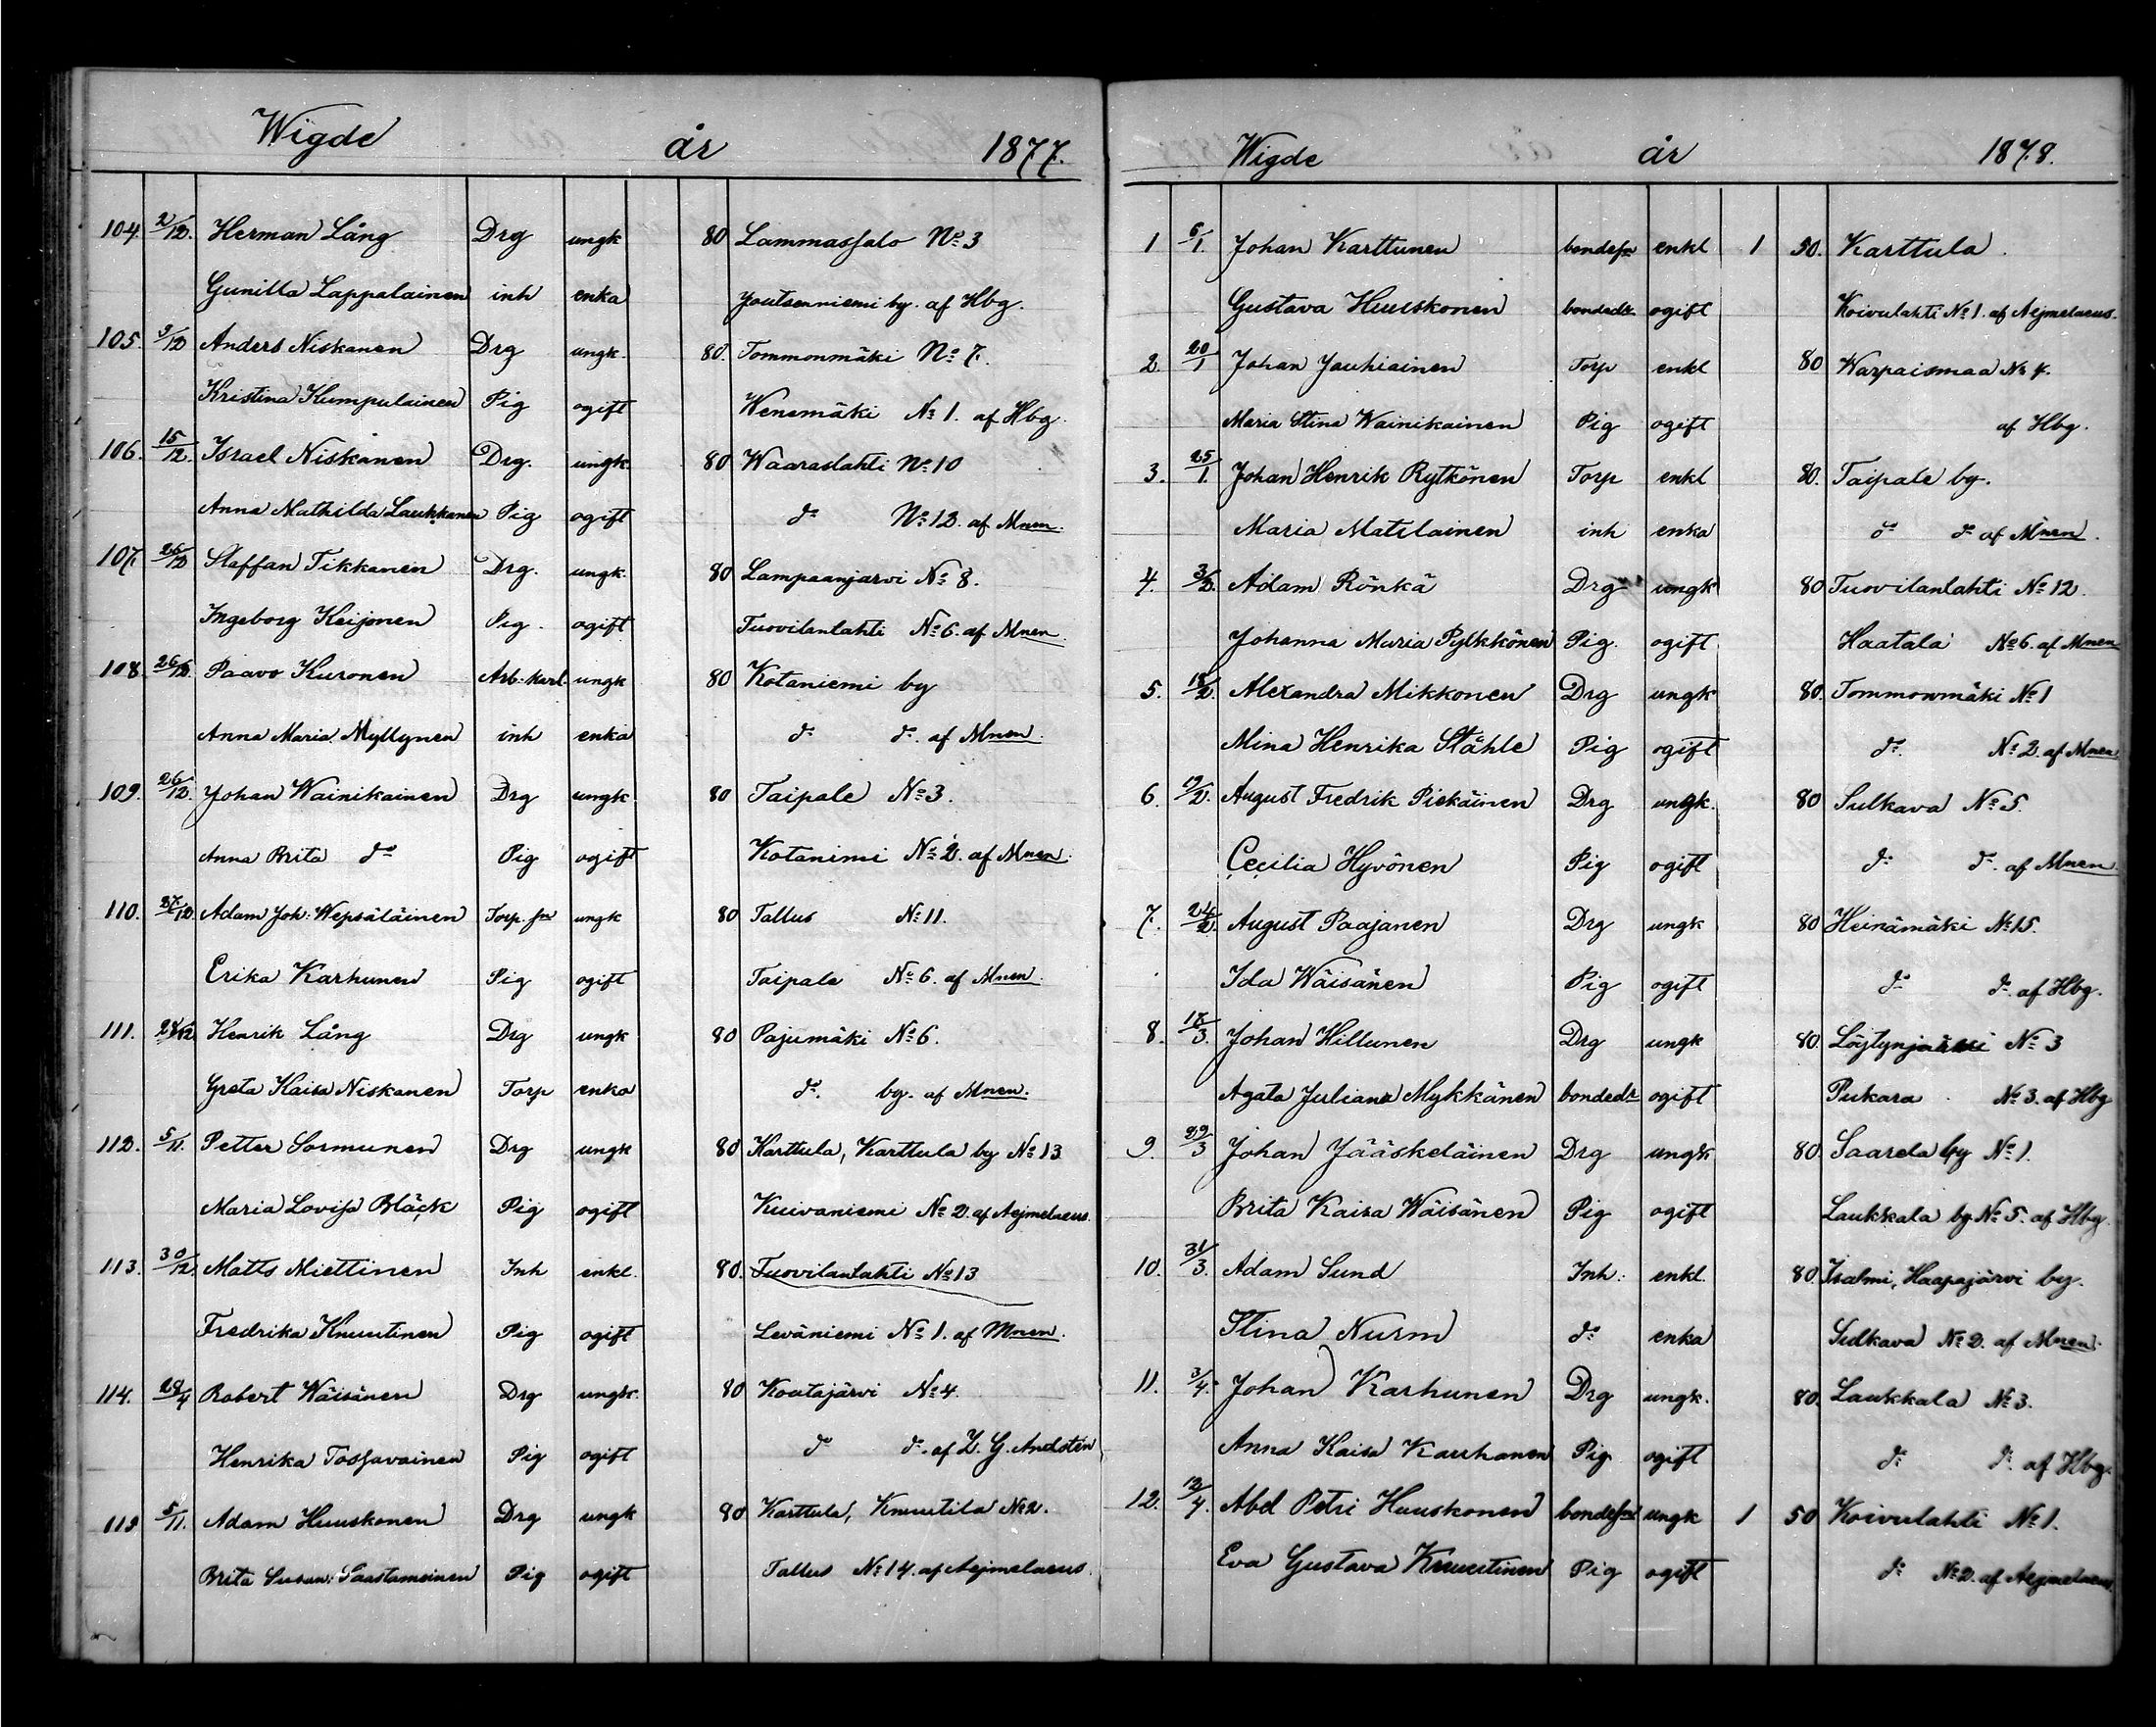 Wigde år 1877.
104. 2/12. Herman Lång Drg ungk 80 Lammassalo No 3
Gunilla Lappalainen inh enka Joutsenniemi by. af Hbg.
105. 9/12 Anders Niskanen Drg ungk. 80. Tommonmäki No 7.
Kristina Humpulainen Pig ogift Wenemäki No 1. af Hbg.
106. 15/12. Israel Niskanen Drg. ungk. 80 Waaraslahti No 10
Anna Mathilda Laukkanen Pig ogift do No 12. af Mnen.
107. 26/12 Staffan Tikkanen Drg. ungk. 80 Lampaanjärvi No 8.
Ingeborg Keijonen Pig. ogift Tuovilanlahti No 6. af Mnen.
108. 26/12. Paavo Kuronen Arb: karl ungk 80 Kotaniemi by
Anna Maria Myllynen inh enka do do. af Mnen.
109. 26/12. Johan Wainikainen Drg ungk 80 Taipale No 3.
Anna Brita do Pig ogift Kotanimi No 2. af Mnen.
110. 27/12. Adam Joh: Wepsäläinen Torp. son ungk 80 Tallus No 11.
Erika Karhunen Pig ogift Taipale No 6. af Mnen.
111. 28/12 Henrik Lång Drg ungk 80 Pajumäki No 6.
Greta Kaisa Niskanen Torp enka do. by. af Mnen.
112. 5/11. Petter Sormunen Drg ungk 80 Karttula, Karttula by No 13
Maria Lovisa Bläck Pig ogift Kuivaniemi No 2. af Aejmelaeus.
113. 30/12. Matts Miettinen Inh enkl. 80. Tuovilanlahti No 13
Fredrika Knuutinen Pig ogift Leväniemi No 1. af Mnen.
114. 28/4 Robert Wäisänen Drg ungk. 80 Koutajärvi No 4.
Henrika Tossavainen Pig ogift do do. af Z. G. Andstén
115 5/11. Adam Huuskonen Drg ungk 80 Karttula, Knuutila No 2.
Brita Susan: Saastamoinen Pig ogift Tallus No 14. af Aejmelaeus.
Wigde år 1878.
1 6/1. Johan Karttunen bondeson enkl 1 50. Karttula.
Gustava Huuskonen bondedr ogift Koivulahti No 1. af Aejmelaeus.
2. 20/1 Johan Jauhiainen Torp enkl 80 Warpaismaa No 4.
Maria Stina Wainikainen Pig ogift af Hbg.
3. 25/1. Johan Henrik Rytkönen Torp enkl 80. Taipale by.
Maria Matilainen inh enka do do af Mnen.
4. 3/2. Adam Rönkä Drg ungk 80 Tuovilanlahti No 12.
Johanna Maria Pylkkönen Pig. ogift Haatala No 6. af Mnen
5. 18/2. Alexandra Mikkonen Drg ungk 80. Tommonmäki No 1
Mina Henrika Ståhle Pig ogift do. No 2. af Mnen.
6. 19/2. August Fredrik Pirkäinen Drg ungk. 80 Sulkava No 5.
Cecilia Hyvönen Pig ogift do do. af Mnen.
7. 24/2. August Paajanen Drg ungk 80 Heinämäki No 15.
Ida Wäisänen Pig ogift do do. af Hbg.
8. 18/3. Johan Hillunen Drg ungk 80. Löytynjärvi No 3
Agata Juliana Mykkänen bondedr ogift Pukara No 3. af Hbg
9. 29/3 Johan Jääskeläinen Drg ungk 80. Saarela by No 1.
Brita Kaisa Wäisänen Pig ogift Laukkala by No 5. af Hbg.
10. 31/3. Adam Sund Inh: enkl. 80. Isalmi, Haapajärvi by.
Stina Nurm do enka Sulkava No 2. af Mnen.
11. 3/4. Johan Karhunen Drg ungk. 80. Laukkala No 3.
Anna Kaisa Kauhanen Pig ogift do do. af Hbg.
12. 12/4. Abel Petri Huuskonen bondeson ungk 1 50 Koivulahti No 1.
Eva Gustava Knuutinen Pig ogift do No 2. af Aejmelaeus.